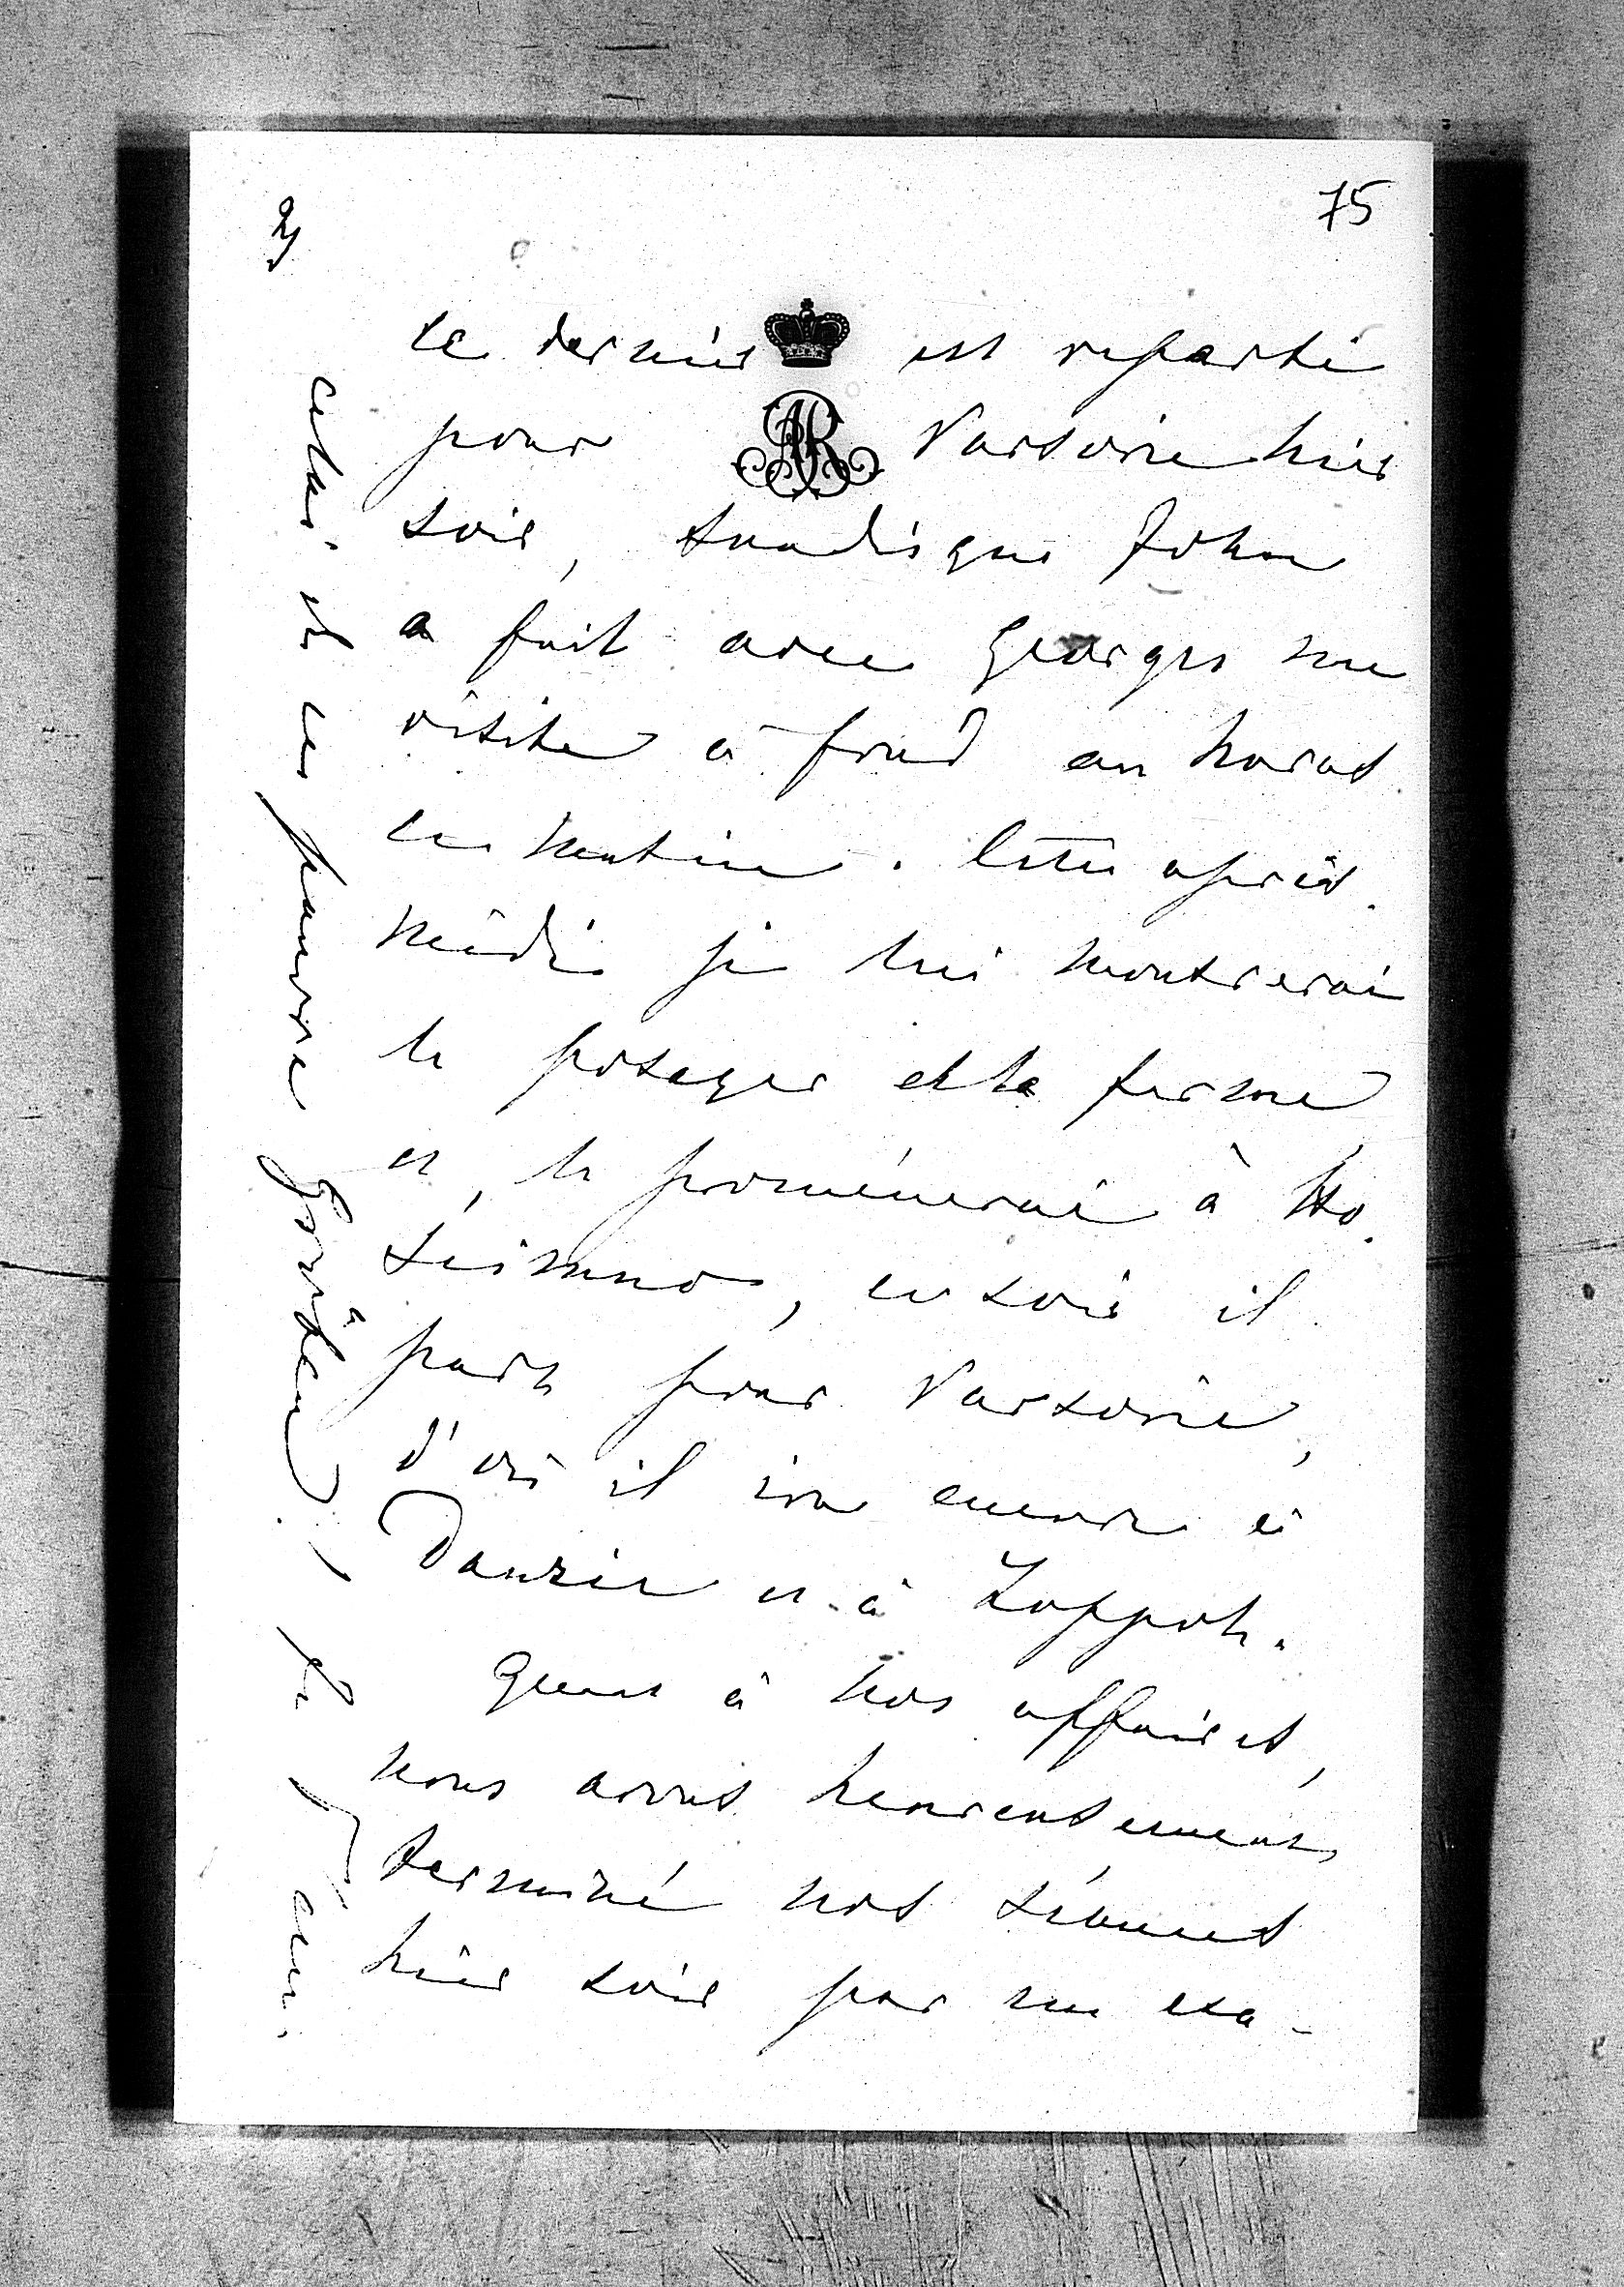 75
2)
ce dernier est reparti
pour Varsovie hier
soir, tandis que John
a fait avec Georges une
visite à fond au haras
ce matin. Cette après
midi je lui montrerai
le potager et la ferme
et, le promènerai à
ce soir il
part pour Varsovie,
d'où il ira encore à
Danzig et à Zoppot.
Quant à nos affaires,
nous avons heureusement
terminé nos séances
hier soir par un exa-
celui de ce pauvre